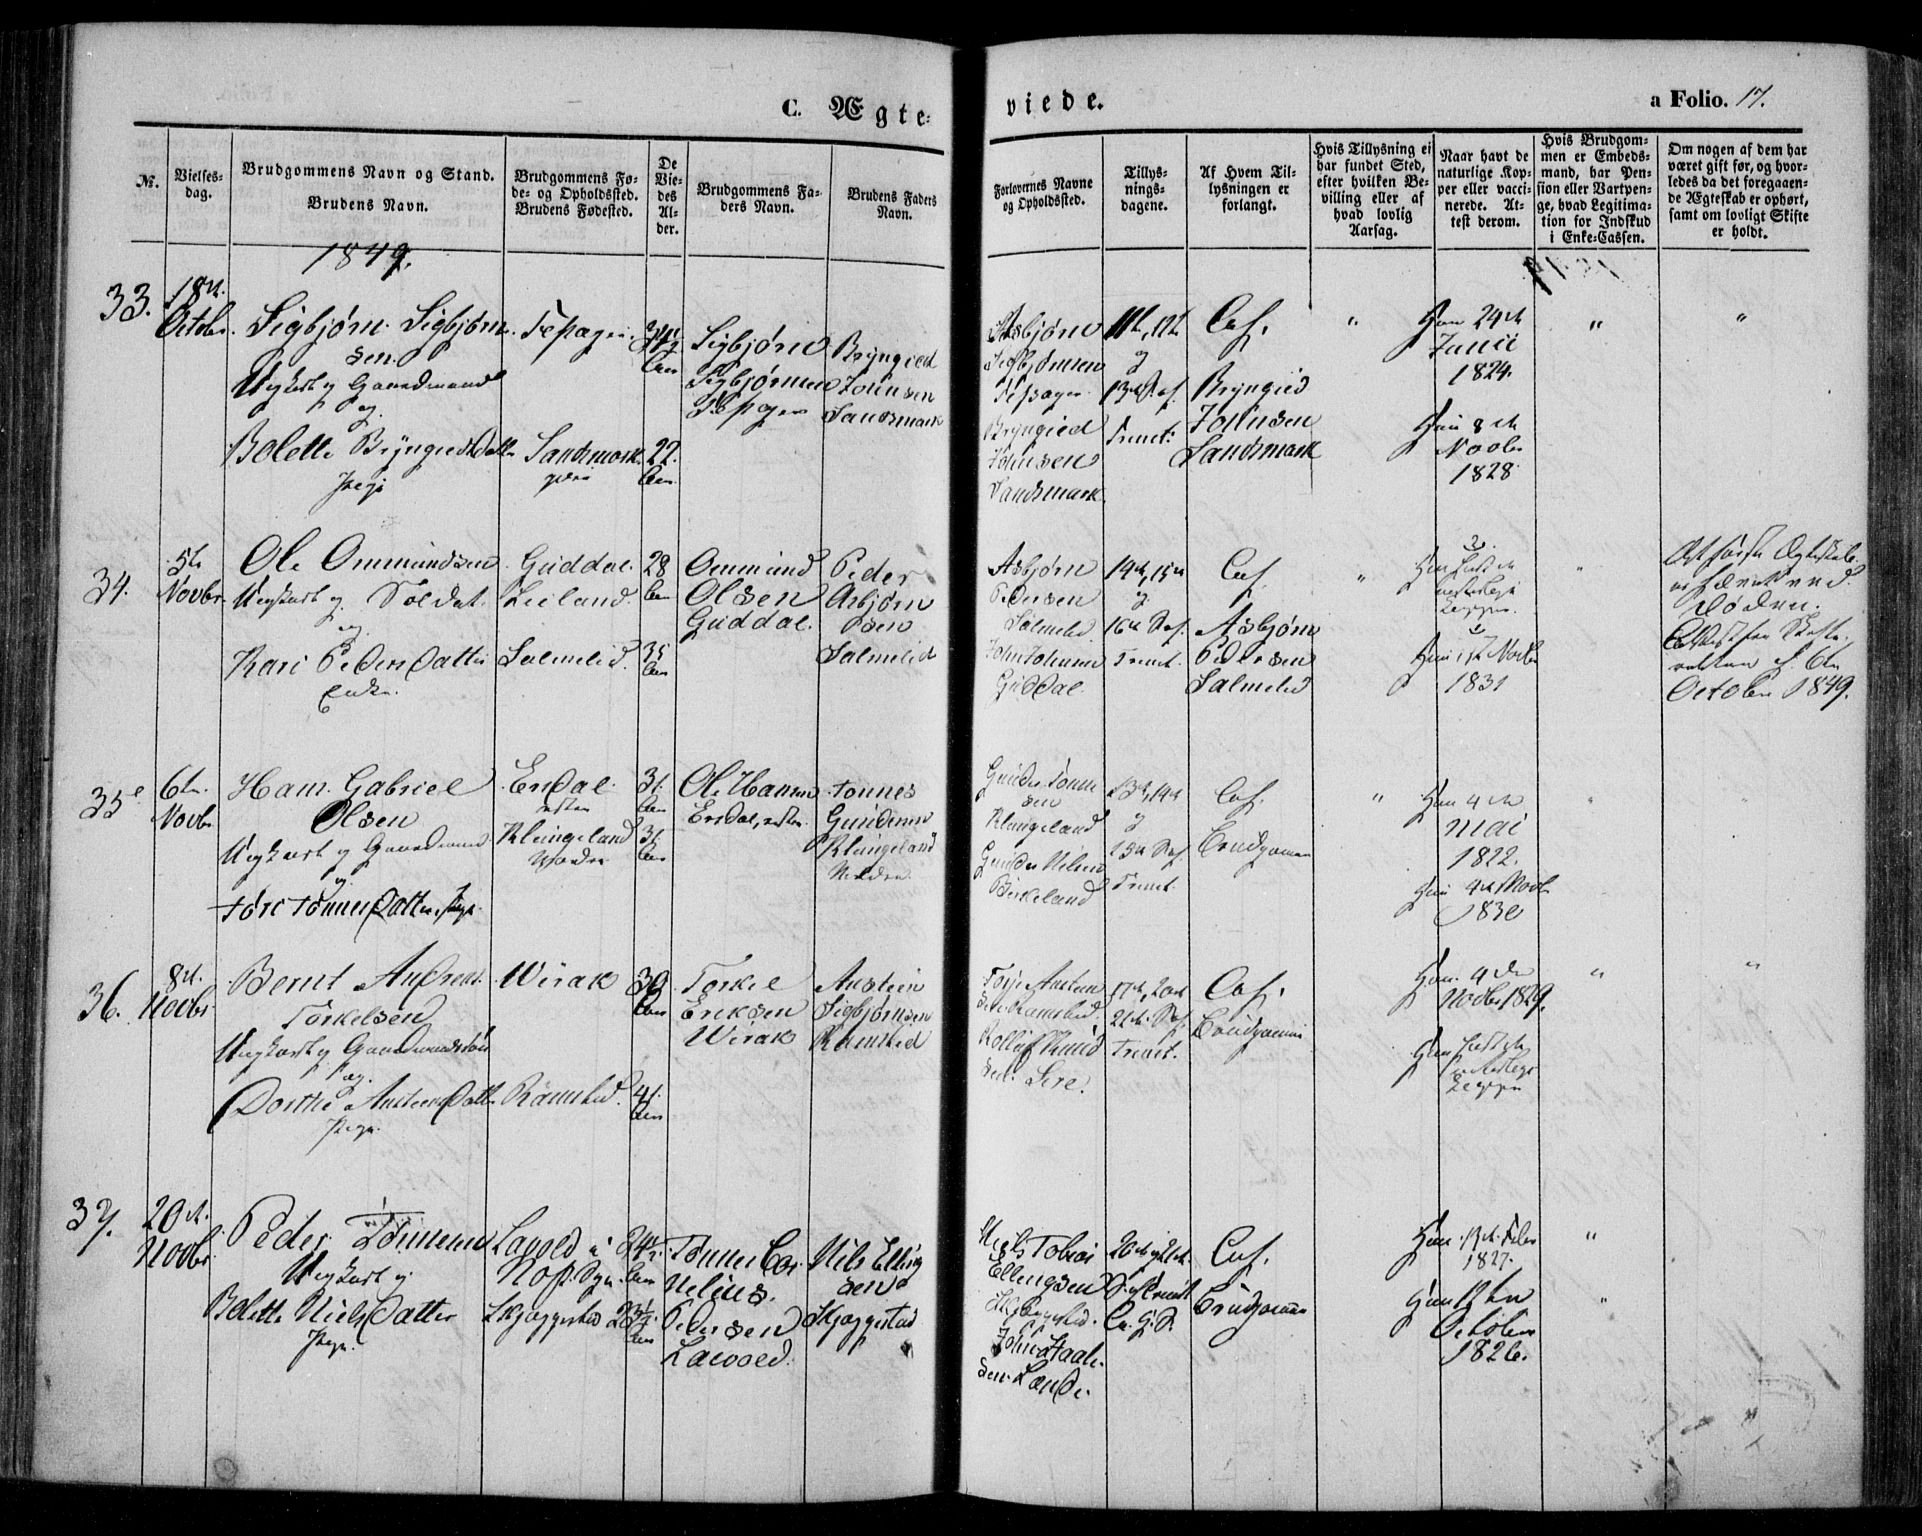 C. Ægte-
viede.
a Folio. 17.
No.
Vielses-
dag.
Brudgommens Navn og Stand.
Brudens Navn.
Brudgommens Fø-
de- og Opholdssted.
Brudens Fødested.
De
Vie-
des
Al-
der.
Brudgommens Fa-
ders Navn.
Brudens Faders
Navn.
Forlovernes Navne
og Opholdssted.
Tillys-
nings-
dagene.
Af Hvem Til-
lysningen er
forlangt.
Hvis Tillysning ei
har fundet Sted,
efter hvilken Be-
villing eller af
hvad lovlig
Aarsag.
Naar havt de
naturlige Kop-
per eller vacci-
nerede. At-
test derom.
Hvis Brudgom-
men er Embeds-
mand, har Pen-
sion eller Vartpen-
ge, hvad Legitima-
tion for Indskud
i Enke-Cassen.
Om nogen af dem har
været gift før, og hvor-
ledes da det foregaaen-
de Ægteskab er ophørt,
samt om lovligt Skifte
er holdt.
1849.
33.
18de
Octobr.
Sigbjørn Sigbjørn-
sen
Ungkarl og Gaardmand
og
Bolette Bryngieldsdatter
Pige
Sandsmark
22
Aar
Sigbjørn
Sigbjørnsen
Bryngield
Johnsen
Sandsmark
Asbjørn
Sigbjørnsen
Bryngield
Johnsen
Sandsmark
11te, 12te
og
13de S. ef.
Trinit:
Bryngield
Johnsen
Sandsmark
"
Ham 24de
Junii
1824.
Hun 8de
Novbr
1828.
"
"
34.
5te
Novbr.
Ole Ommundsen
Ungkarl og Soldat
og
Kari Pedersdatter
Enke.
Guddal
Leiland
Salmelid.
28
Aar
35
Aar
Ommund
Olsen
Guddal.
Peder
Asbjørn
sen
Salmelid
Asbjørn
Pedersen
Salmelid
Guddal
14de, 15de
og
16de S. ef.
Trinit.
Asbjørn
Pedersen
Salmelid
"
Hun 17de Novbr
1831
Døden.
October 1849.
35
6te
Novbr
Hans Gabriel
Olsen
Ungkarl og Gaardmand
og
Tøri Tønnesdatter, Pige.
Eisdal
Klungeland
31
Aar
31
Aar
Ole Hansen
Tønnes
Gundersen
Klungeland
Gunder Tønne
sen
Klungeland
Gunder Nilsen
Birkeland
13de, 14de
og
15de S. ef.
Trinit.
Brudgommen
"
Ham 4de
Mai
1822.
Hun 4de Novbr
1830
36.
8de
Novbr
Bernt Andreas
Torkelsen
Ungkarl og Gaardmandssøn
og
Dorthe Austeensdatter
Pige.
Wirak
Ramslid.
30
Aar
41
Aar
Torkel
Eriksen
Wirak
Austein
Sigbjørnsen
Ramslid
Terje Austein
sen Ramslid.
Rollef Knud
sen Sire.
20de
21de S. ef.
Trinit.
Brudgommen
Ham 4de
Novbr 1829.
"
"
37.
20de
Novbr
Peder Tønnesen
Ungkarl og
Bolette Nielsdatter
Pige.
Lavold i
Skjæggestad
24½
Aar
23½
Aar
Tønnes Cor
nelius
Pedersen
Lavold.
Nils Elling
sen
Skjæggestad
Niels Tobias
Ellingsen
Skjæggestad.
John Staale
sen Lande.
20de og 21de
S. ef. Trinit
Brudgommen
Ham 13de Febr
1827.
Hun 12te
October
1826.
"
"